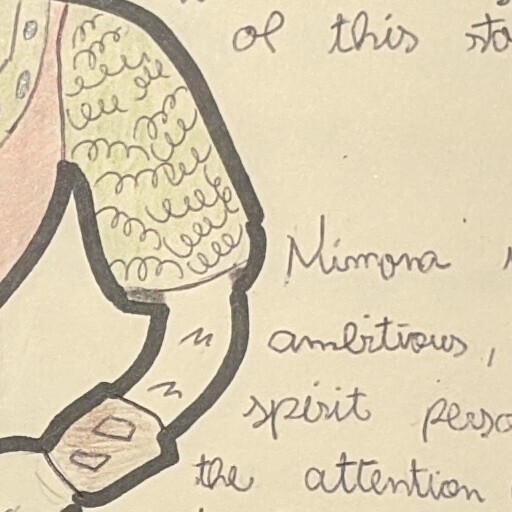 of this
Mimona
ambitious,
spirit
the attention